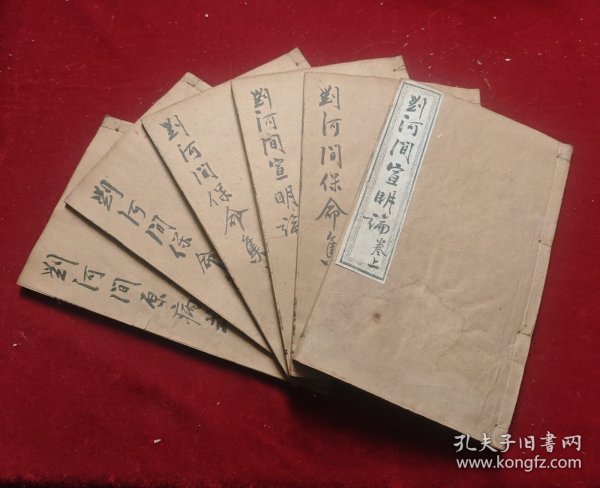 劉河間宣明論卷上
劉河間保命集
劉河間宣明論
劉河間保命集
劉河間保命
劉河間原病
孔夫子旧書网
www.kongfz.com